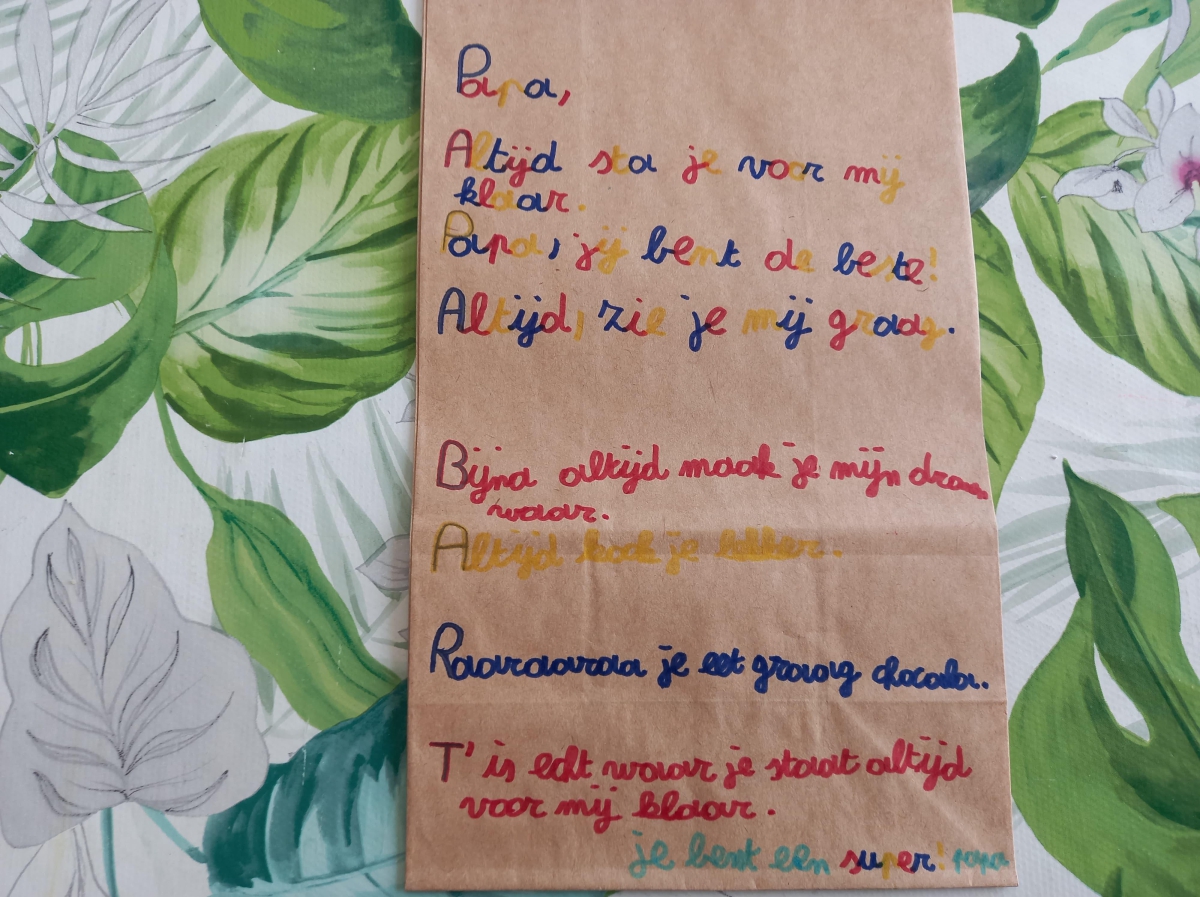 Papa,
Altijd sta je voor mij
klaar.
Papa, jij bent de beste!
Altijd, zie je mij graag.
Bijna altijd maak je mijn
waar.
Altijd kook je lekker.
Raaraaraa je eet graag
T' is echt waar je staat altijd
voor mij klaar.
je bent een super! papa